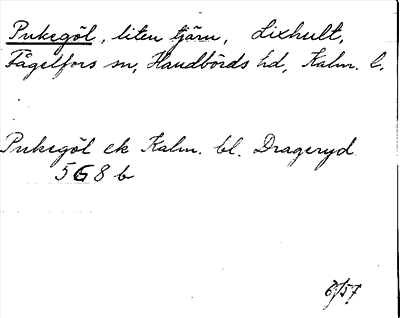 Pukegöl, liten tjärn, Lixhult,
Fågelfors sn, Handbörds hd, Kalm. l.
Pukegöl ek Kalm. bl. Drageryd
5G8b
6/57